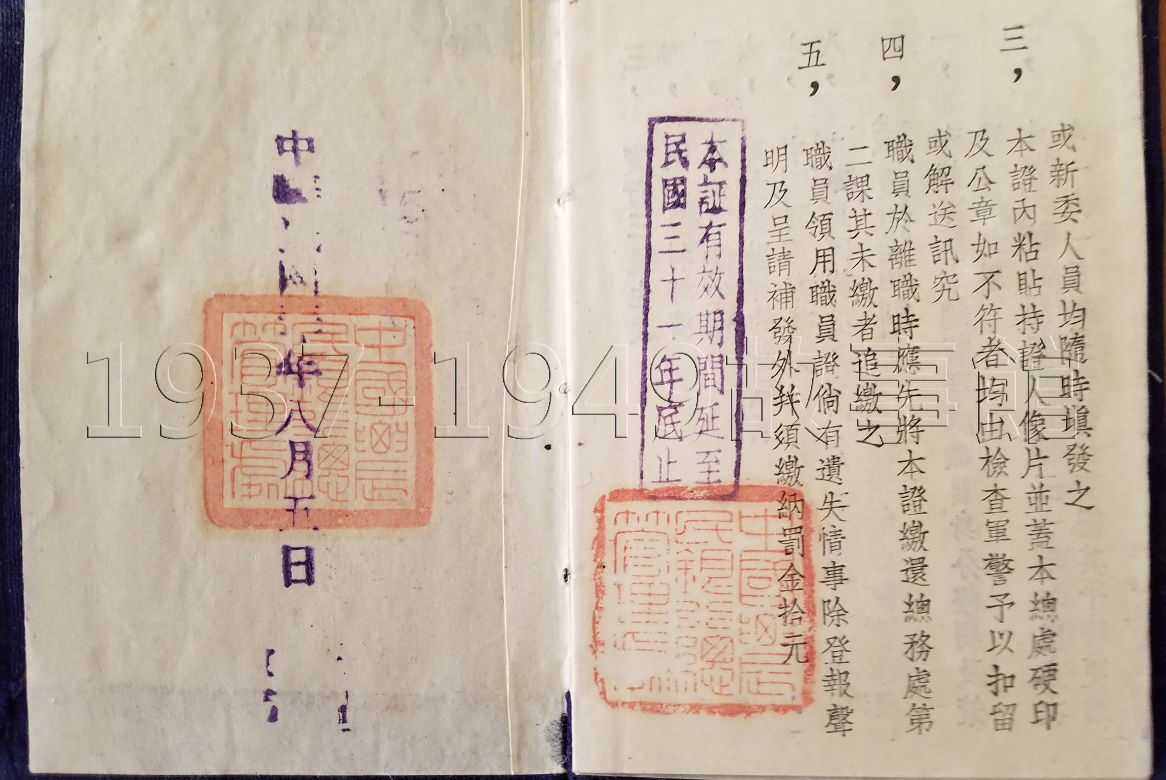 或新委人員均隨時塡發之
三，本證內粘貼持證人像片並蓋本總處硬印
及公章如不符者均由檢查軍警予以扣留
或解送訊究
四，職員於離職時應先將本證繳還總務處第
二課其未繳者追繳之
五，職員領用職員證倘有遺失情事除登報聲
明及呈請補發外幷須繳納罰金拾元
本証有效期間延至
民國三十一年底止
年八月五日
1937-1949故事館